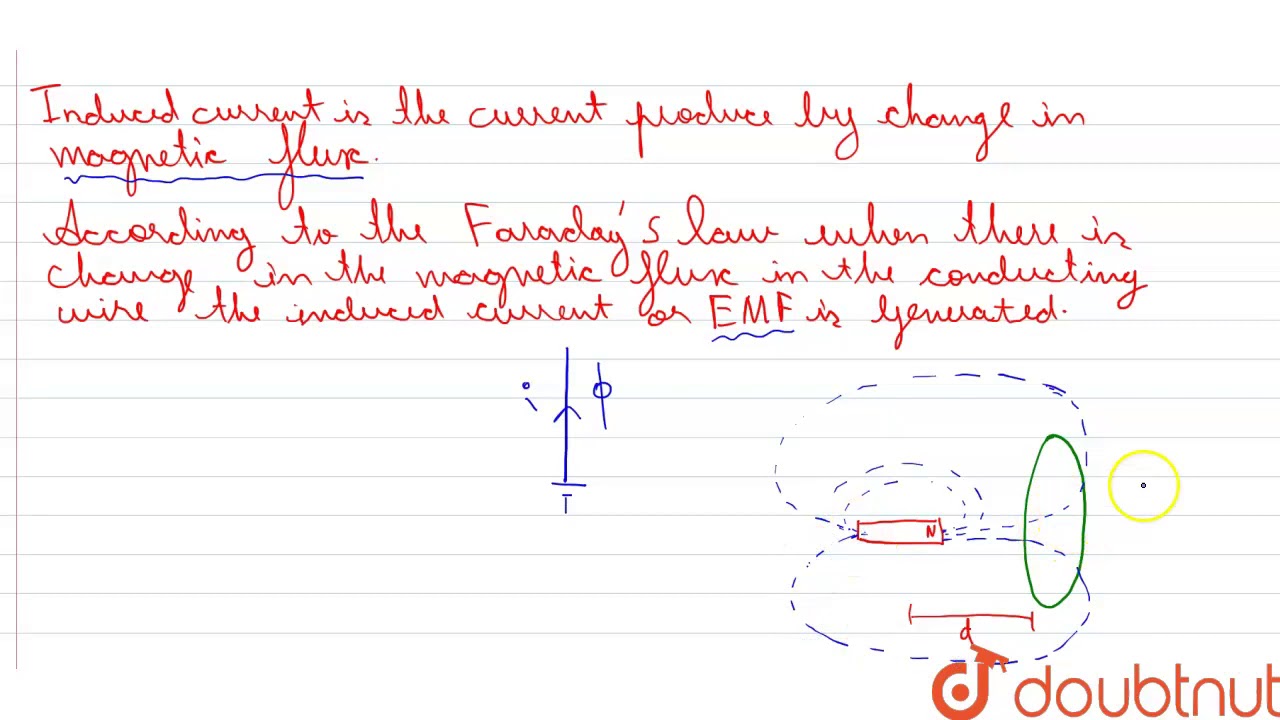 Induced current is the current produce by change in
magnetic flux.
According to the Faraday's law when there is
change in the magnetic flux in the conducting
wire the induced current or EMF is generated.
i ϕ
N
d
doubtnut